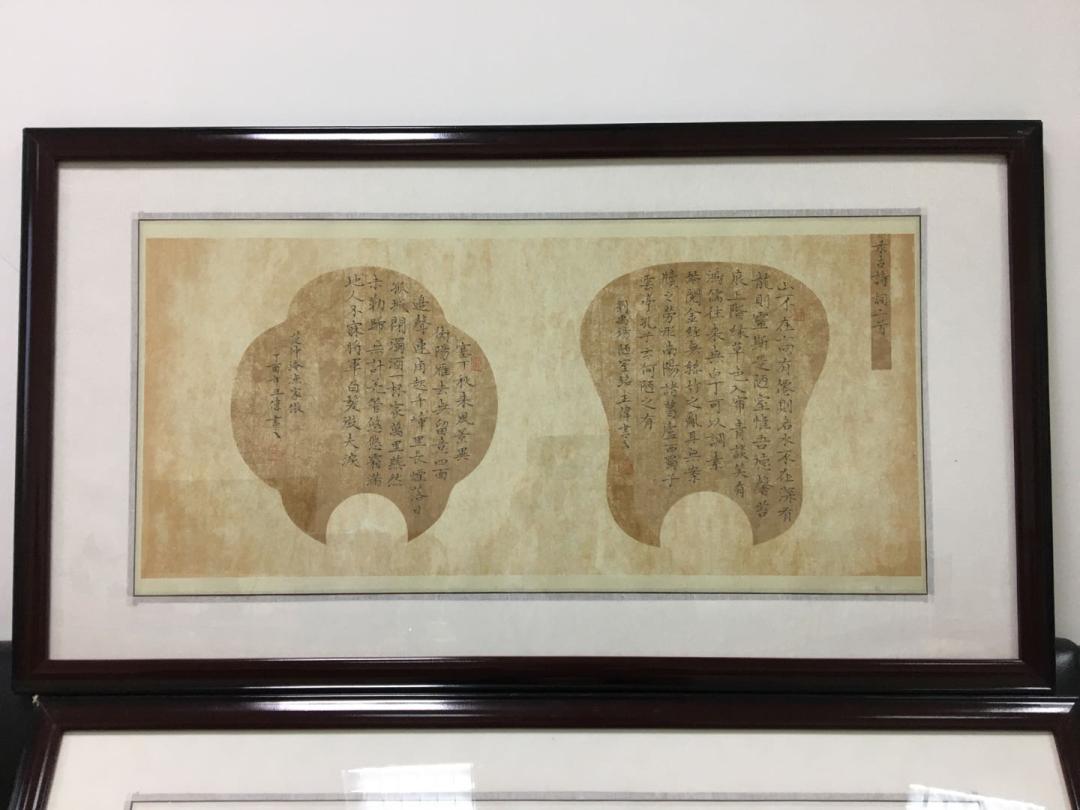 录古詩詞二首
山不在高有僊則名水不在深有
龍則靈斯是陋室惟吾德馨苔
痕上階綠草色入帘青談笑有
鴻儒往来無白丁可以調素
琴閱金經無絲竹之亂耳無案
牘之勞形南陽諸葛廬西蜀子
雲亭孔子云何陋之有
劉禹錫陋室銘王偉書
塞下秋来風景異
衡陽雁去無留意四面
邊聲連角起千嶂里長煙落日
孤城閉濁酒一杯家萬里燕然
未勒歸無計羌管悠悠霜滿
地人不寐將軍白髮徵夫淚
范仲淹漁家傲
丁酉年王偉書